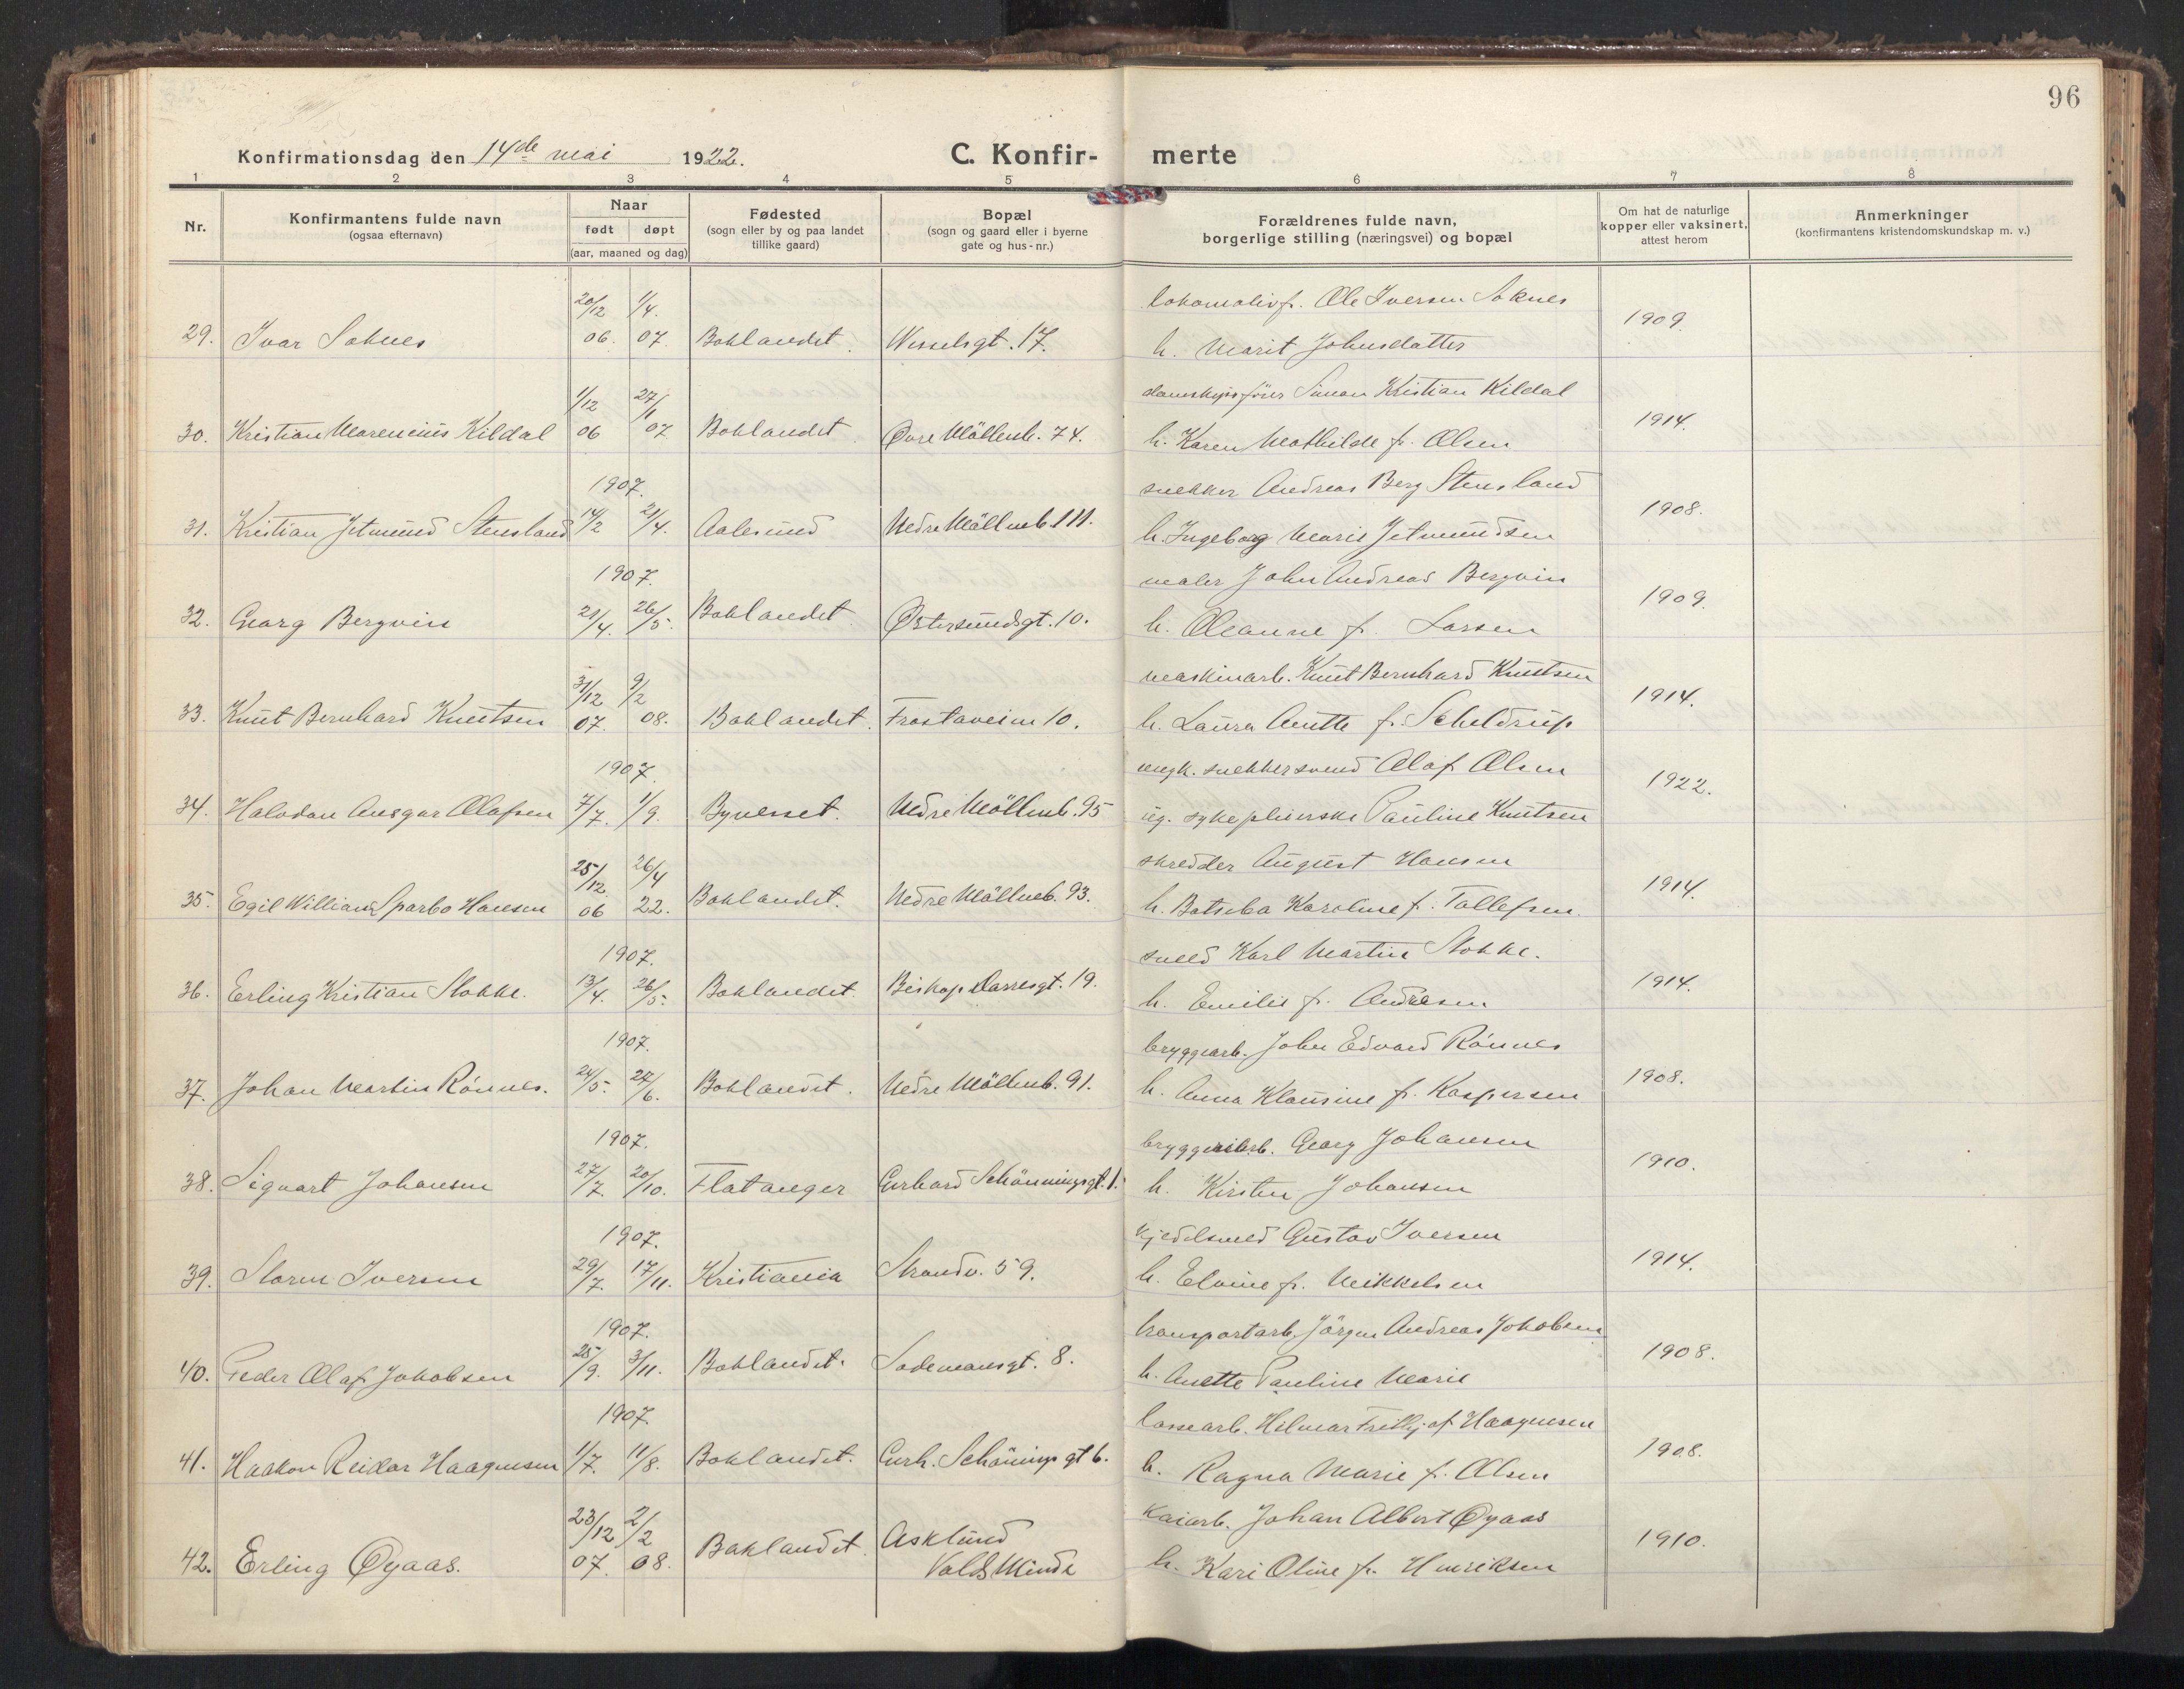 96
Konfirmationsdag den 14de mai 1922.
C. Konfir- merte
1 2 3 4 5 6 7 8
Nr.
Konfirmantens fulde navn
(ogsaa efternavn)
Naar
født døpt
(aar, maaned og dag)
Fødested
(sogn eller by og paa landet
tillike gaard)
Bopæl
(sogn og gaard eller i byerne
gate og hus-nr.)
Forældrenes fulde navn,
borgerlige stilling (næringsvei) og bopæl
Om hat de naturlige
kopper eller vaksinert,
attest herom
Anmerkninger
(konfirmantens kristendomskundskap m. v.)
20/12 1/4. lokomotivf. Ole Iversen Soknes
29. Ivar Soknes 06. 07. Baklandet. Wesselsgt. 17. h. Marit Johnsdatter 1909.
1/12 27/1 damskipsfører Simon Kristian Kildal
30. Kristian Marenius Kildal 06 07 Baklandet. Øvre Möllenb. 74. h. Karen Mathilde f. Olsen 1914.
1907. snekker Andreas Berg Stensland
31. Kristian Jetmund Stensland 14/2 21/4. Aalesund Nedre Möllenb. 111. h. Ingeborg Marie Jetmundsen 1908.
1907. maler John Andreas Bergvin
32. Georg Bergvin 21/4. 26/5. Baklandet. Østersundsgt. 10. h. Oleanne f. Larsen 1909.
31/12 9/2 maskinarb. Knut Bernhard Knutsen
33. Knut Bernhard Knutsen 07. 08. Baklandet. Frostaveien 10. h. Laura Anette f. Scheldrup 1914.
1907. ungk. snekkersvend Olaf Olsen
34. Halvdan Ansgar Olafsen 7/7. 1/9. Bynesset. Nedre Möllenb. 95 ug. sykepleierske Pauline Knutsen 1922.
25/12 26/4 skredder August Hansen
35. Egil William Sparbo Hansen 06 22. Baklandet. Nedre Möllenb. 93. h. Batseba Karoline f. Tollefsen. 1914.
1907. smed Karl Martin Stokke.
36. Erling Kristian Stokke. 13/4. 26/5. Baklandet. Biskop Darresgt. 19. h. Emilie f. Andresen 1914.
1907. bryggearb. John Edvard Rönnes
37. Johan Martin Rönnes. 24/5. 27/6. Baklandet. Nedre Möllenb. 91. h. Anna Klausine f. Kaspersen 1908.
1907. bryggeriarb. Georg Johansen
38. Sigvart Johansen 27/7. 20/10. Flatanger Gerhard Schönningsgt. 1. h. Kirsten Johansen 1910.
1907. kjedelsmed Gustav Iversen
39. Storm Iversen 29/7. 17/11. Kristiania Strandv. 59. h. Elvine f. Mikkelsen 1914.
1907. transportarb. Jörgen Andreas Jakobsen
40. Peder Olaf Jakobsen 25/9. 3/11. Baklandet. Sodemansgt. 8. h. Anette Pauline Marie 1908.
1907. lossearb. Hilmar Fridtjof Haagensen
41. Haakon Reidar Haagensen 1/7. 11/8. Baklandet. Gerh. Schönings gt 6. h. Ragna Marie f. Olsen 1908.
23/12 2/2 Asklund kaiarb. Johan Albert Øyaas
42. Erling Øyaas. 07. 08. Baklandet. Volds Minde h. Kari Oline f. Henriksen 1910.